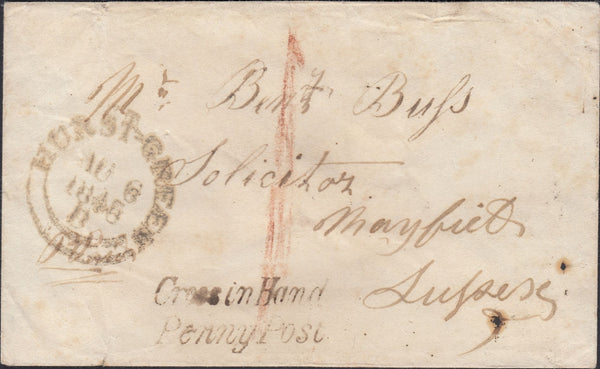 Mr. Benj Buss
Solicitor
Mayfield
Sussex
HURST-GREEN
AU 6
1846
B
Cross in Hand
Penny Post
1